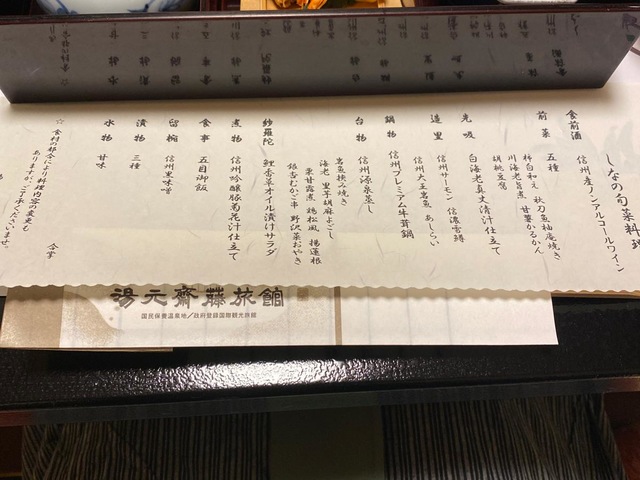 しなの旬菜料理
食前酒　信州産ノンアルコールワイン
前菜　五種
柿白和え　秋刀魚柚庵焼き
川海老旨煮　甘栗かるかん
胡桃豆腐
光吸　白海老真丈清汁仕立て
造里　信州サーモン　信濃雪鱒
信州大王岩魚　あしらい
鍋物　信州プレミアム牛茸鍋
台物　信州源泉蒸し
岩魚挟み焼き
海老　里芋胡麻よごし
栗甘露煮　鶏松風　揚蓮根
銀杏むかご串　野沢菜おやき
紗羅陀　鯉香草オイル漬けサラダ
煮物　信州吟醸豚菊花汁仕立て
食事　五目御飯
留椀　信州黒味噌
漬物　三種
水物　甘味
☆　食材の都合により料理内容の変更も
ありますが、ご了承くださいませ。
湯元齋藤旅館
国民保養温泉地／政府登録国際観光旅館